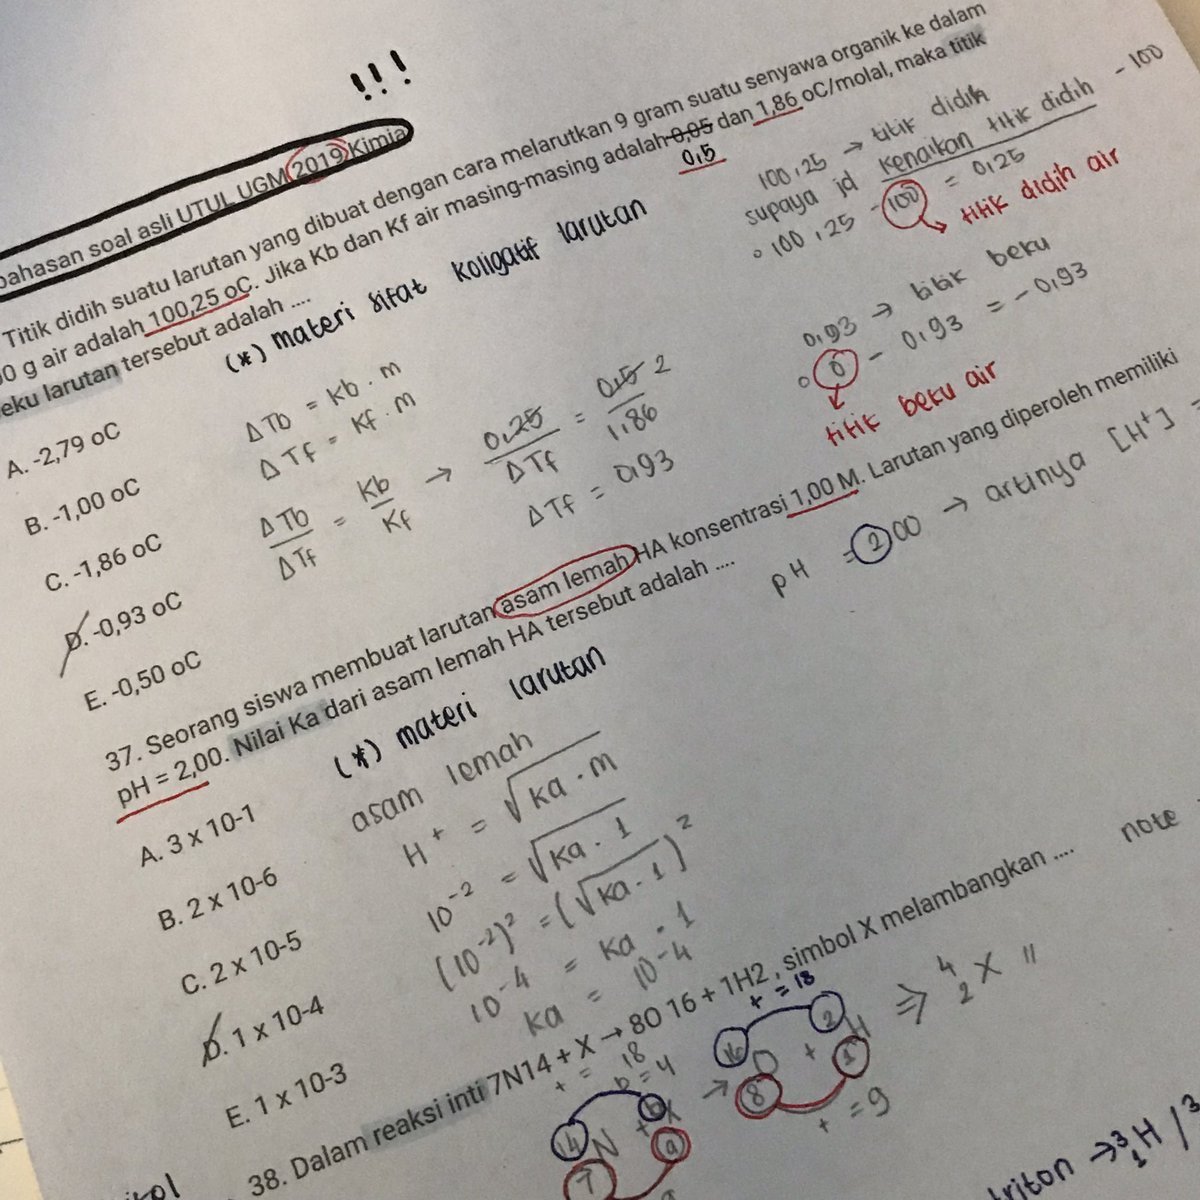 !!!
bahasan soal asli UTUL UGM 2019 Kimia
Titik didih suatu larutan yang dibuat dengan cara melarutkan 9 gram suatu senyawa organik ke dalam
00 g air adalah 100,25 oC. Jika Kb dan Kf air masing-masing adalah 0,05 dan 1,86 oC/molal, maka titik
0,5
eku larutan tersebut adalah ....
(*) materi sifat koligatif larutan
100,25 → titik didih
supaya jd kenaikan titik didih - 100
° 100,25 - 100 = 0,25
titik didih air
0,93 → titik beku
° 0 - 0,93 = - 0,93
titik beku air
A. -2,79 oC
B. -1,00 oC
C. -1,86 oC
D. -0,93 oC
E. -0,50 oC
ΔTb = Kb . m
ΔTf = Kf . m
ΔTb/ΔTf = Kb/Kf → 0,25/ΔTf = 0,5 2/1,86
ΔTf = 0,93
37. Seorang siswa membuat larutan asam lemah HA konsentrasi 1,00 M. Larutan yang diperoleh memiliki
pH = 2,00. Nilai Ka dari asam lemah HA tersebut adalah ....
(*) materi larutan
pH = 200 → artinya [H+] =
A. 3 x 10-1
B. 2 x 10-6
C. 2 x 10-5
D. 1 x 10-4
E. 1 x 10-3
asam lemah
H+ = √ka . m
10-2 = √ka . 1
(10-2)2 = (√ka . 1)2
10-4 = ka . 1
ka = 10-4
38. Dalam reaksi inti 7N14 + X → 8O 16 + 1H2 , simbol X melambangkan ....
note
+ = 18
b = 4
14 N + b X → 16 O + 2 H ⇒ 4 2 X "
7 a 8 1
+ = 18
+ = 9
triton → 3 1 H / 3